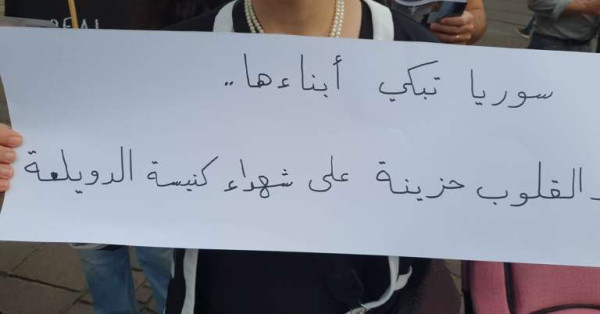 سوريا تبكي أبناءها..
القلوب حزينة على شهداء كنيسة الدويلعة